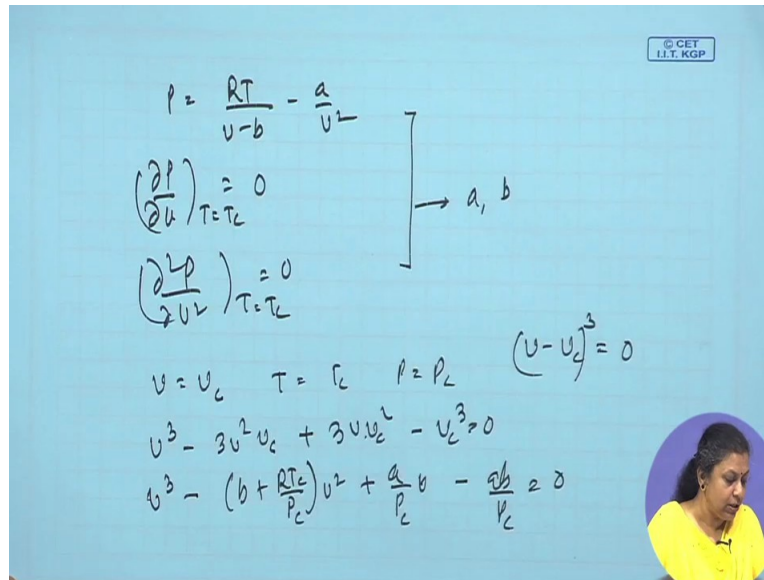 © CET
I.I.T. KGP
P = RT/(v-b) - a/v²
(∂P/∂v)_{T=T_c} = 0
→ a, b
(∂²P/∂v²)_{T=T_c} = 0
(v - v_c)³ = 0
v = v_c T = T_c P = P_c
v³ - 3v²v_c + 3v.v_c² - v_c³ = 0
v³ - (b + RT_c/P_c)v² + a/P_c v - ab/P_c = 0